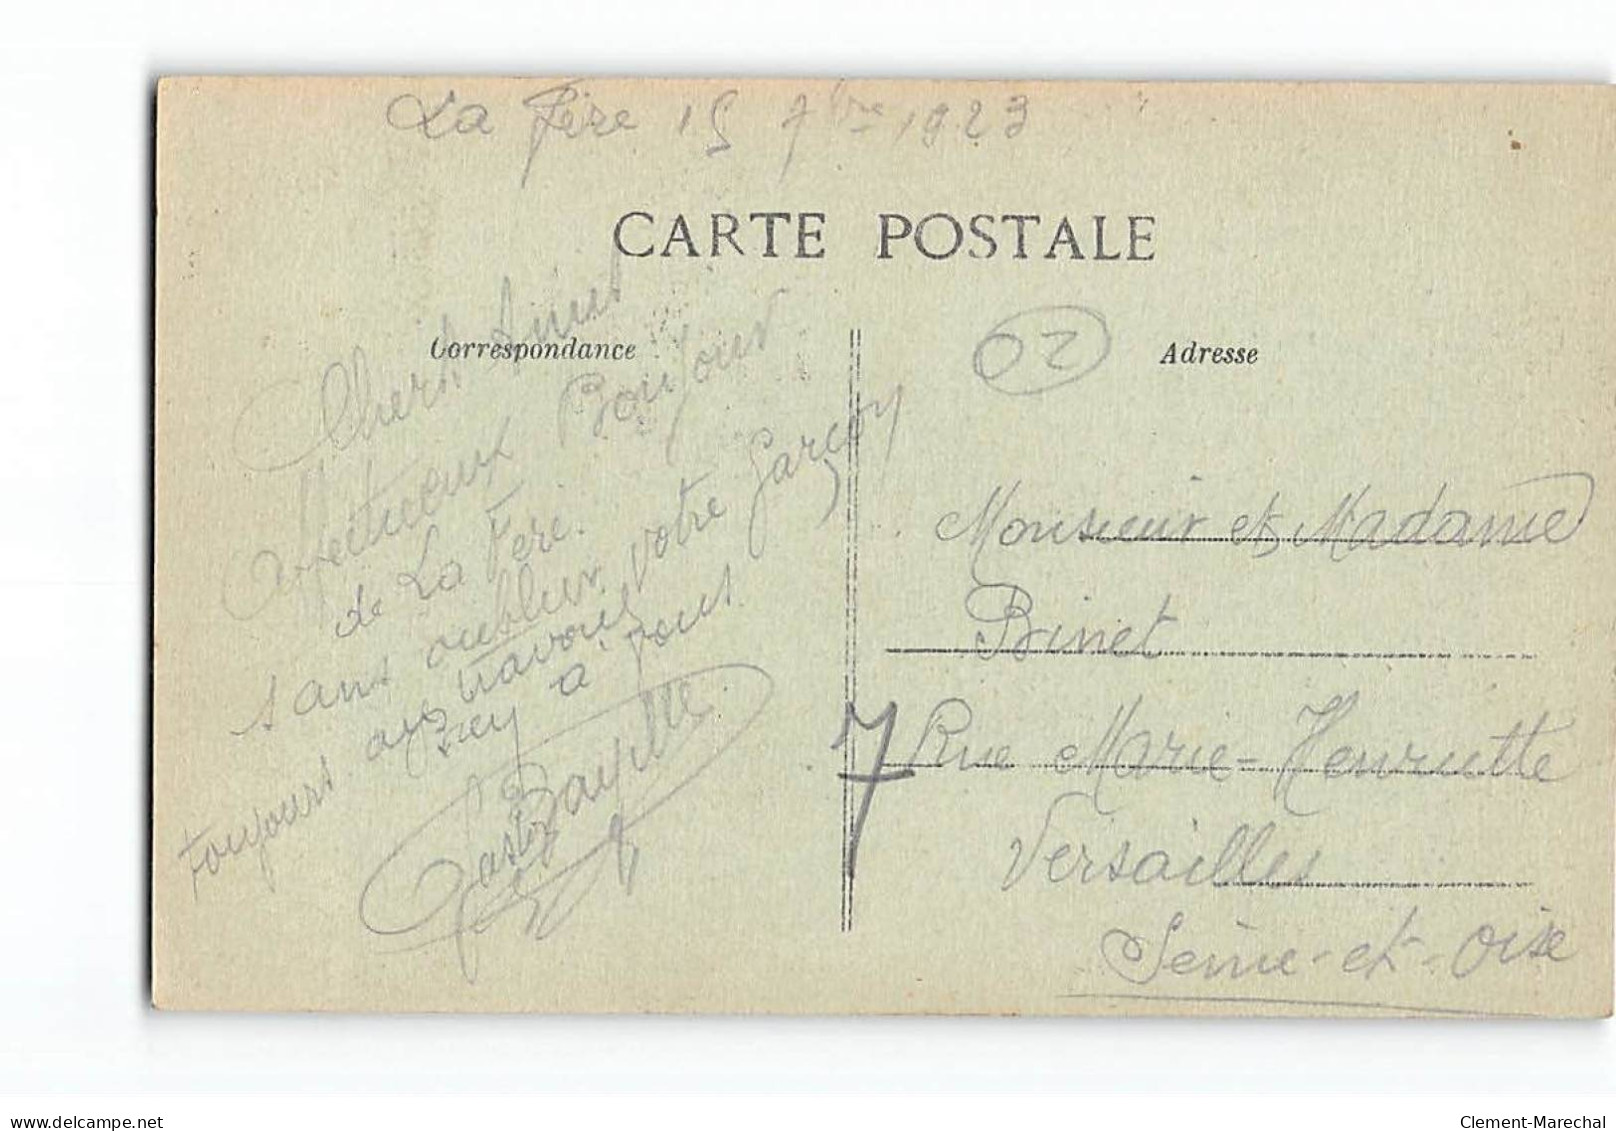 La Fère 15 7bre 1923
CARTE POSTALE
Correspondance
Adresse
02
Chers Amis
Affectueux Bonjour
de La Fère.
sans oublier votre Garçon
toujours
à
Monsieur et Madame
Binet
7 Rue Marie-Henriette
Versailles
Seine-et-Oise
delcampe.net
Clement-Marechal